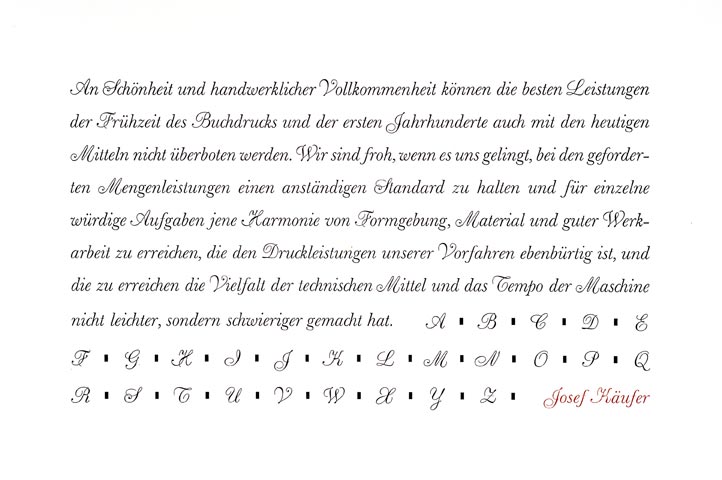 An Schönheit und handwerklicher Vollkommenheit können die besten Leistungen
der Frühzeit des Buchdrucks und der ersten Jahrhunderte auch mit den heutigen
Mitteln nicht überboten werden. Wir sind froh, wenn es uns gelingt, bei den geforder-
ten Mengenleistungen einen anständigen Standard zu halten und für einzelne
würdige Aufgaben jene Harmonie von Formgebung, Material und guter Werk-
arbeit zu erreichen, die den Druckleistungen unserer Vorfahren ebenbürtig ist, und
die zu erreichen die Vielfalt der technischen Mittel und das Tempo der Maschine
nicht leichter, sondern schwieriger gemacht hat. A ▪ B ▪ C ▪ D ▪ E
F ▪ G ▪ H ▪ I ▪ J ▪ K ▪ L ▪ M ▪ N ▪ O ▪ P ▪ Q
R ▪ S ▪ T ▪ U ▪ V ▪ W ▪ X ▪ Y ▪ Z ▪ Josef Käufer